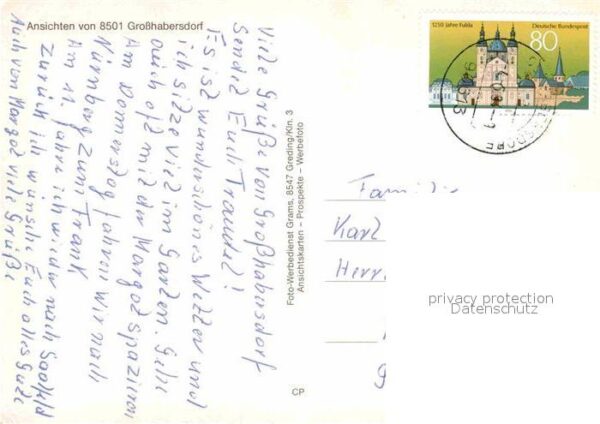 Ansichten von 8501 Großhabersdorf
Viele Grüße von Großhabersdorf
sendet Euch Traudel!
Es ist wunderschönes Wetter und
ich sitze viel im Garten. Gehe
auch oft mit der Margot spazieren
Am Donnerstag fahren wir nach
Nürnberg zum Frank
Am 11. fahre ich wieder nach Saalfeld
zurück ich wünsche Euch alles Gute
Auch von Margot viele Grüße
Foto-Werbedienst Grams, 8547 Greding/Kln. 3
Ansichtskarten – Prospekte – Werbefoto
CP
1250 Jahre Fulda
Deutsche Bundespost
80
Famili
Karl
Herr
privacy protection
Datenschutz